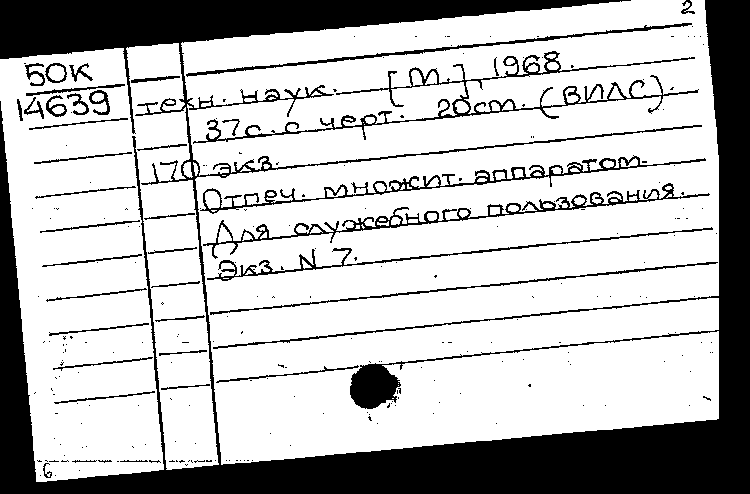 2
50К
14639
техн. наук. [М.], 1968.
37с. с черт. 20см. (ВИЛС).
170 экз.
Отпеч. множит. аппаратом.
Для служебного пользования.
Экз. N 7.
6